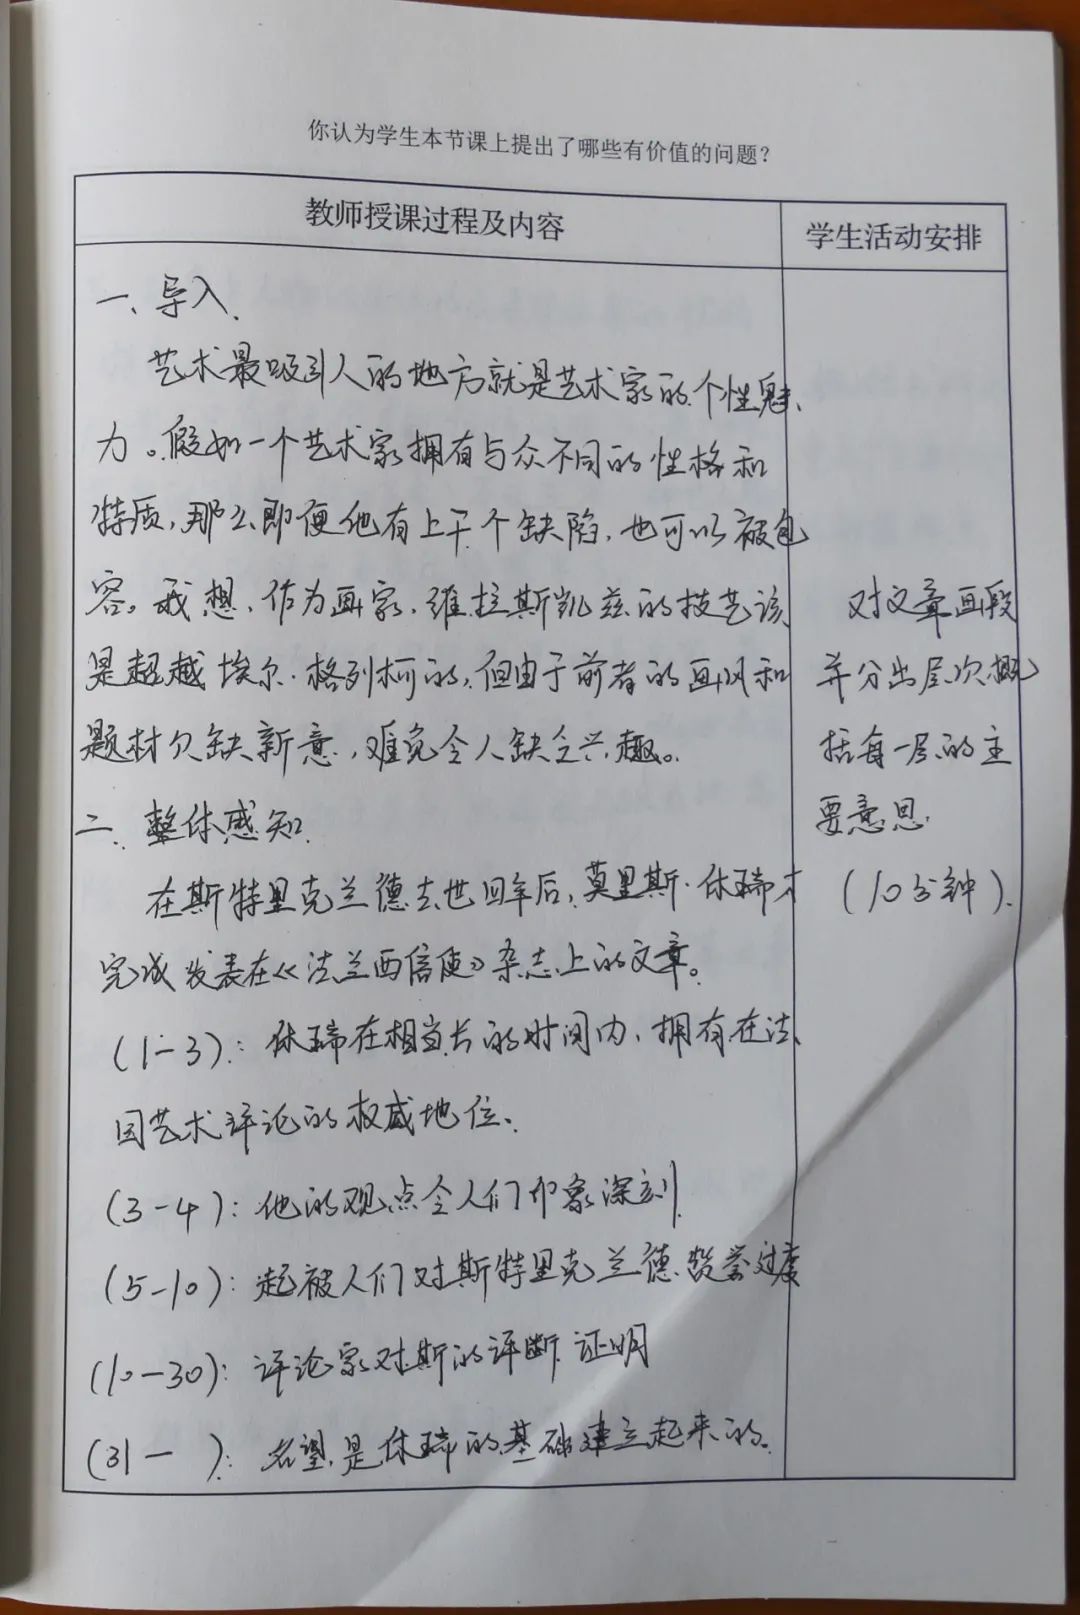 你认为学生本节课上提出了哪些有价值的问题？
教师授课过程及内容
学生活动安排
一、导入.
艺术最吸引人的地方就是艺术家的个性魅
力。假如一个艺术家拥有与众不同的性格和
特质，那么即便他有上千个缺陷，也可以被包
容。我想，作为画家，维拉斯凯兹的技艺该
是超越埃尔·格列柯的，但由于前者的画风和
题材欠缺新意，难免令人缺乏兴趣。
二、整体感知.
在斯特里克兰德去世四年后，莫里斯·休瑞才
完成发表在《法兰西信使》杂志上的文章。
(1-3)：休瑞在相当长的时间内，拥有在法
国艺术评论的权威地位。
(3-4)：他的观点令人们印象深刻
(5-10)：起被人们对斯特里克兰德赞誉过度
(10-30)：评论家对斯的评断证明
(31- )：名望是休瑞的基础建立起来的.
对文章画段
并分出层次概
括每一层的主
要意思.
(10分钟).